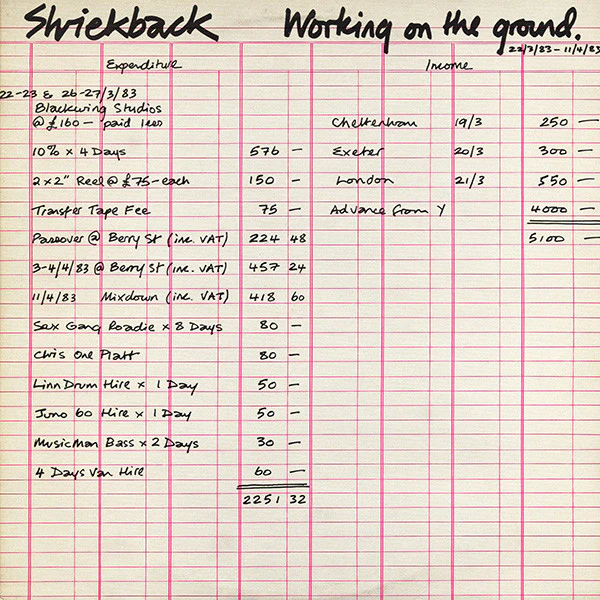 Shriekback Working on the ground.
22/3/83 – 11/4/83
Expenditure Income
22-23 & 26-27/3/83
Blackwing Studios
@ £160 — paid less Cheltenham 19/3 250 —
10% x 4 Days 576 — Exeter 20/3 300 —
2 x 2" Reel @ £75 — each 150 — London 21/3 550 —
Transfer Tape Fee 75 — Advance from Y 4000 —
Passover @ Berry St (inc. VAT) 224 48 5100 —
3-4/4/83 @ Berry St (inc. VAT) 457 24
11/4/83 Mixdown (inc. VAT) 418 60
Sex Gang Roadie x 8 Days 80 —
Chris One Platt 80 —
Linn Drum Hire x 1 Day 50 —
Juno 60 Hire x 1 Day 50 —
MusicMan Bass x 2 Days 30 —
4 Days Van Hire 60 —
2251 32